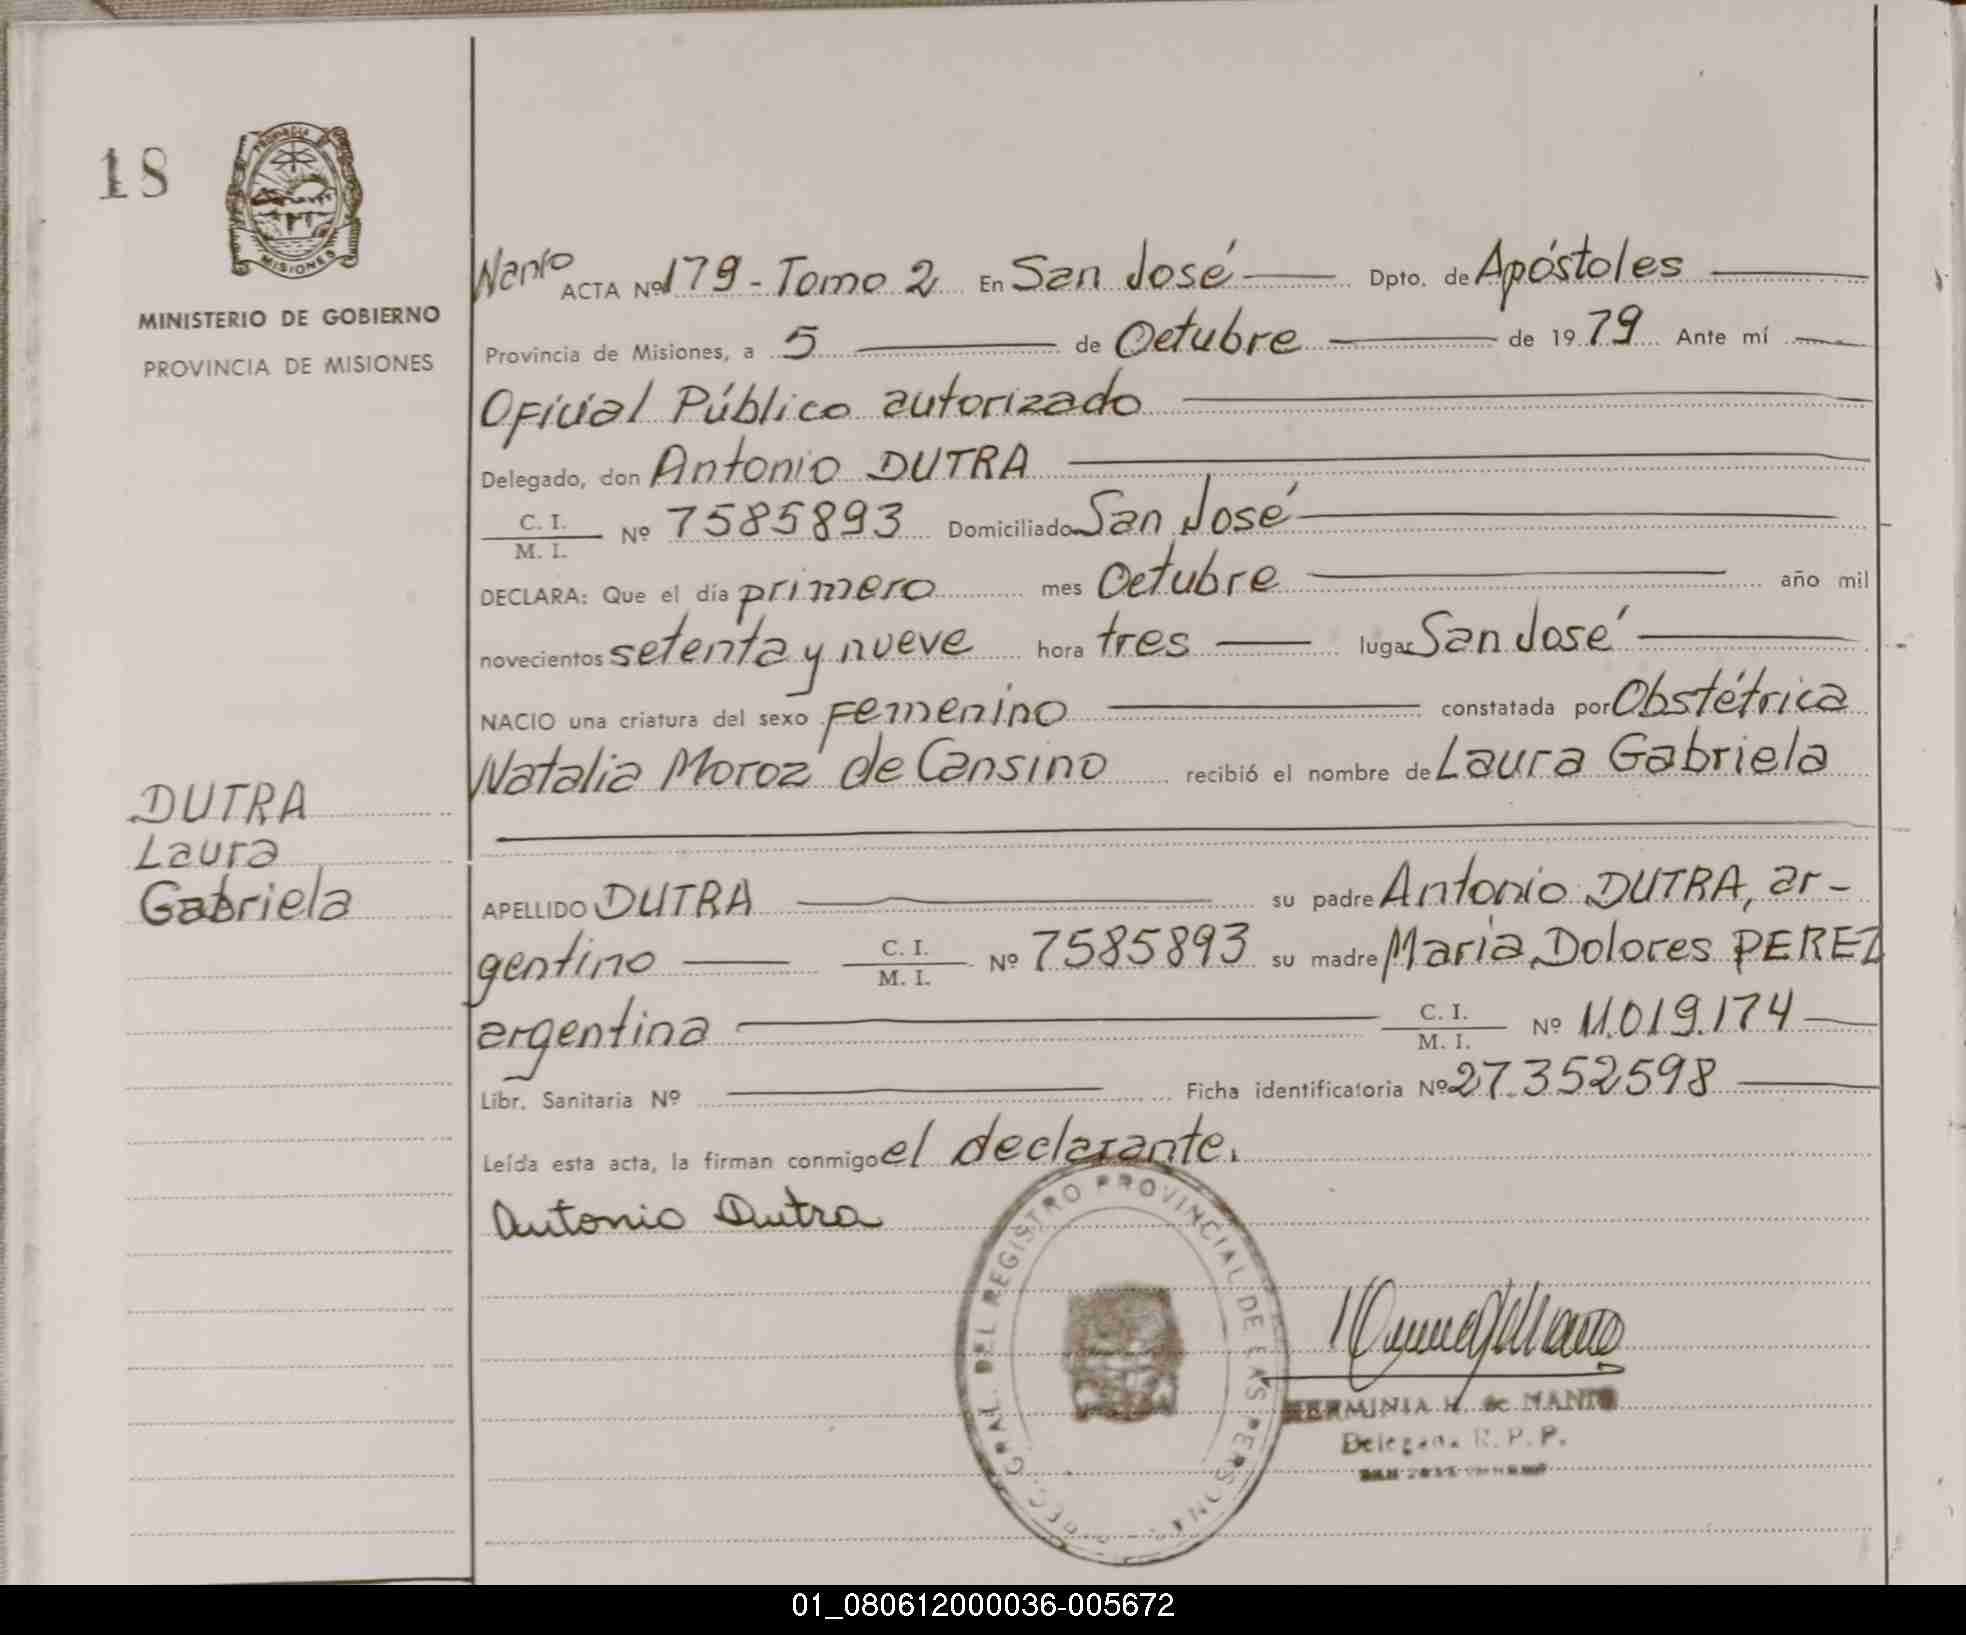 18
PROVINCIA
MISIONES
MINISTERIO DE GOBIERNO
PROVINCIA DE MISIONES
DUTRA
Laura
Gabriela
Nanto ACTA Nº 179 - Tomo 2 En San José Dpto. de Apóstoles
Provincia de Misiones, a 5 de Octubre de 1979 Ante mí
Oficial Público autorizado
Delegado, don Antonio DUTRA
C. I. / M. I. Nº 7585893 Domiciliado San José
DECLARA: Que el día primero mes Octubre año mil
novecientos setenta y nueve hora tres lugar San José
NACIO una criatura del sexo Femenino constatada por Obstétrica
Natalia Moroz de Cansino recibió el nombre de Laura Gabriela
APELLIDO DUTRA su padre Antonio DUTRA, ar-
gentino C. I. / M. I. Nº 7585893 su madre María Dolores PEREZ
argentina C. I. / M. I. Nº 11.019.174
Libr. Sanitaria Nº Ficha identificatoria Nº 27.352598
Leída esta acta, la firman conmigo el declarante.
Antonio Dutra
DIREC. GRAL. DEL REGISTRO PROVINCIAL DE LAS PERSONAS
HERMINIA H. de NANTO
Delegada R. P. P.
01_080612000036-005672